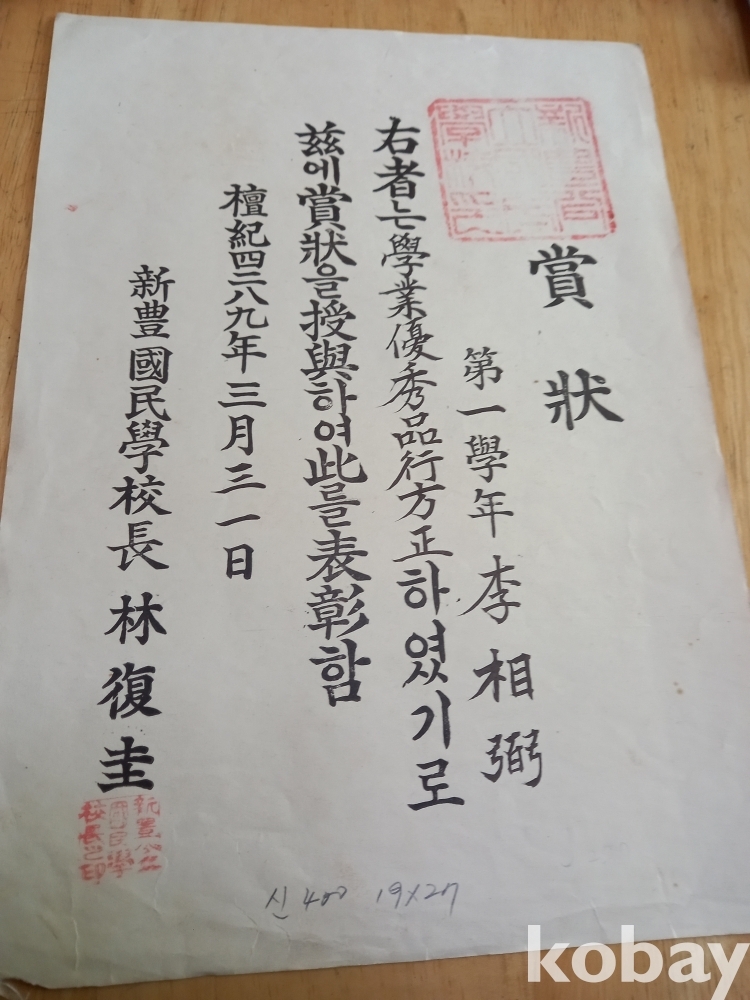 賞狀
第一學年 李相弼
右者는學業優秀品行方正하였기로
玆에賞狀을授與하여此를表彰함
檀紀四二八九年三月三一日
新豊國民學校長 林復圭
신400 19×27
kobay